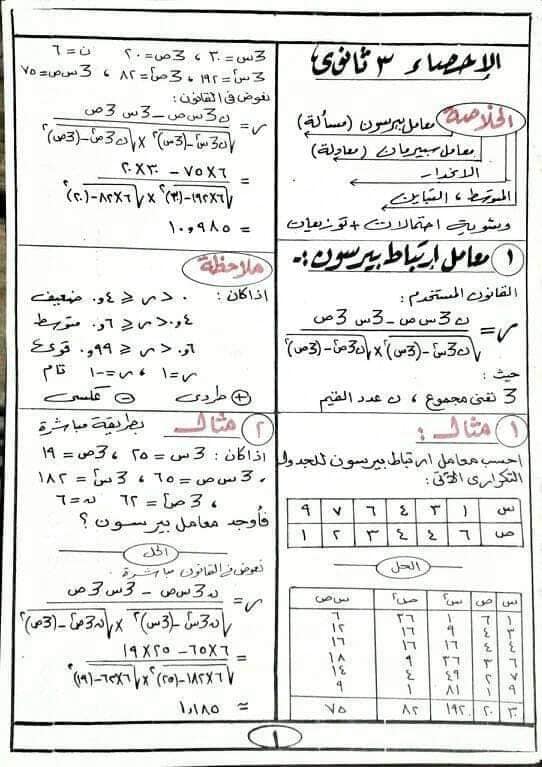 الإحصاء ٣ ثانوى
الخلاصة
معامل بيرسون (مسألة)
معامل سبيرمان (معادلة)
الانحدار
المتوسط ، التباين
وشوية احتمالات + توزيعات
١ معامل ارتباط بيرسون :-
القانون المستخدم :
ر = (ن ع س ص - ع س ع ص) / (√(ن ع س² - (ع س)²) × √(ن ع ص² - (ع ص)²))
حيث :
ع تعنى مجموع ، ن عدد القيم
١ مثال :
احسب معامل ارتباط بيرسون للجدول
التكرارى الآتى :
س ١ ٣ ٤ ٦ ٧ ٩
ص ٦ ٤ ٤ ٣ ٢ ١
الحل
س ص س² ص² س ص
١ ٦ ١ ٣٦ ٦
٣ ٤ ٩ ١٦ ١٢
٤ ٤ ١٦ ١٦ ١٦
٦ ٣ ٣٦ ٩ ١٨
٧ ٢ ٤٩ ٤ ١٤
٩ ١ ٨١ ١ ٩
٣٠ ٢٠ ١٩٢ ٨٢ ٧٥
ع س = ٣٠ ، ع ص = ٢٠ ن = ٦
ع س² = ١٩٢ ، ع ص² = ٨٢ ، ع س ص = ٧٥
نعوض فى القانون :
ر = (ن ع س ص - ع س ع ص) / (√(ن ع س² - (ع س)²) × √(ن ع ص² - (ع ص)²))
(٦×٧٥ - ٣٠×٢٠) / (√(٦×١٩٢ - (٣٠)²) × √(٦×٨٢ - (٢٠)²))
= ١٠,٩٨٥
ملاحظة
اذا كان : ٠ < ر ≤ ٠,٤ ضعيف
٠,٤ < ر ≤ ٠,٦ متوسط
٠,٦ < ر ≤ ٠,٩٩ قوى
ر = ١ ، ر = -١ تام
+ طردى - عكسى
٢ مثال بطريقة مباشرة
اذا كان : ع س = ٢٥ ، ع ص = ١٩
، ع س ص = ٦٥ ، ع س² = ١٨٢
، ع ص² = ٦٢ ن = ٦
فأوجد معامل بيرسون ؟
الحل
نعوض فى القانون مباشرة
ر = (ن ع س ص - ع س ع ص) / (√(ن ع س² - (ع س)²) × √(ن ع ص² - (ع ص)²))
= (٦×٦٥ - ٢٥×١٩) / (√(٦×١٨٢ - (٢٥)²) × √(٦×٦٣ - (١٩)²))
≈ ١,١٨٥
١